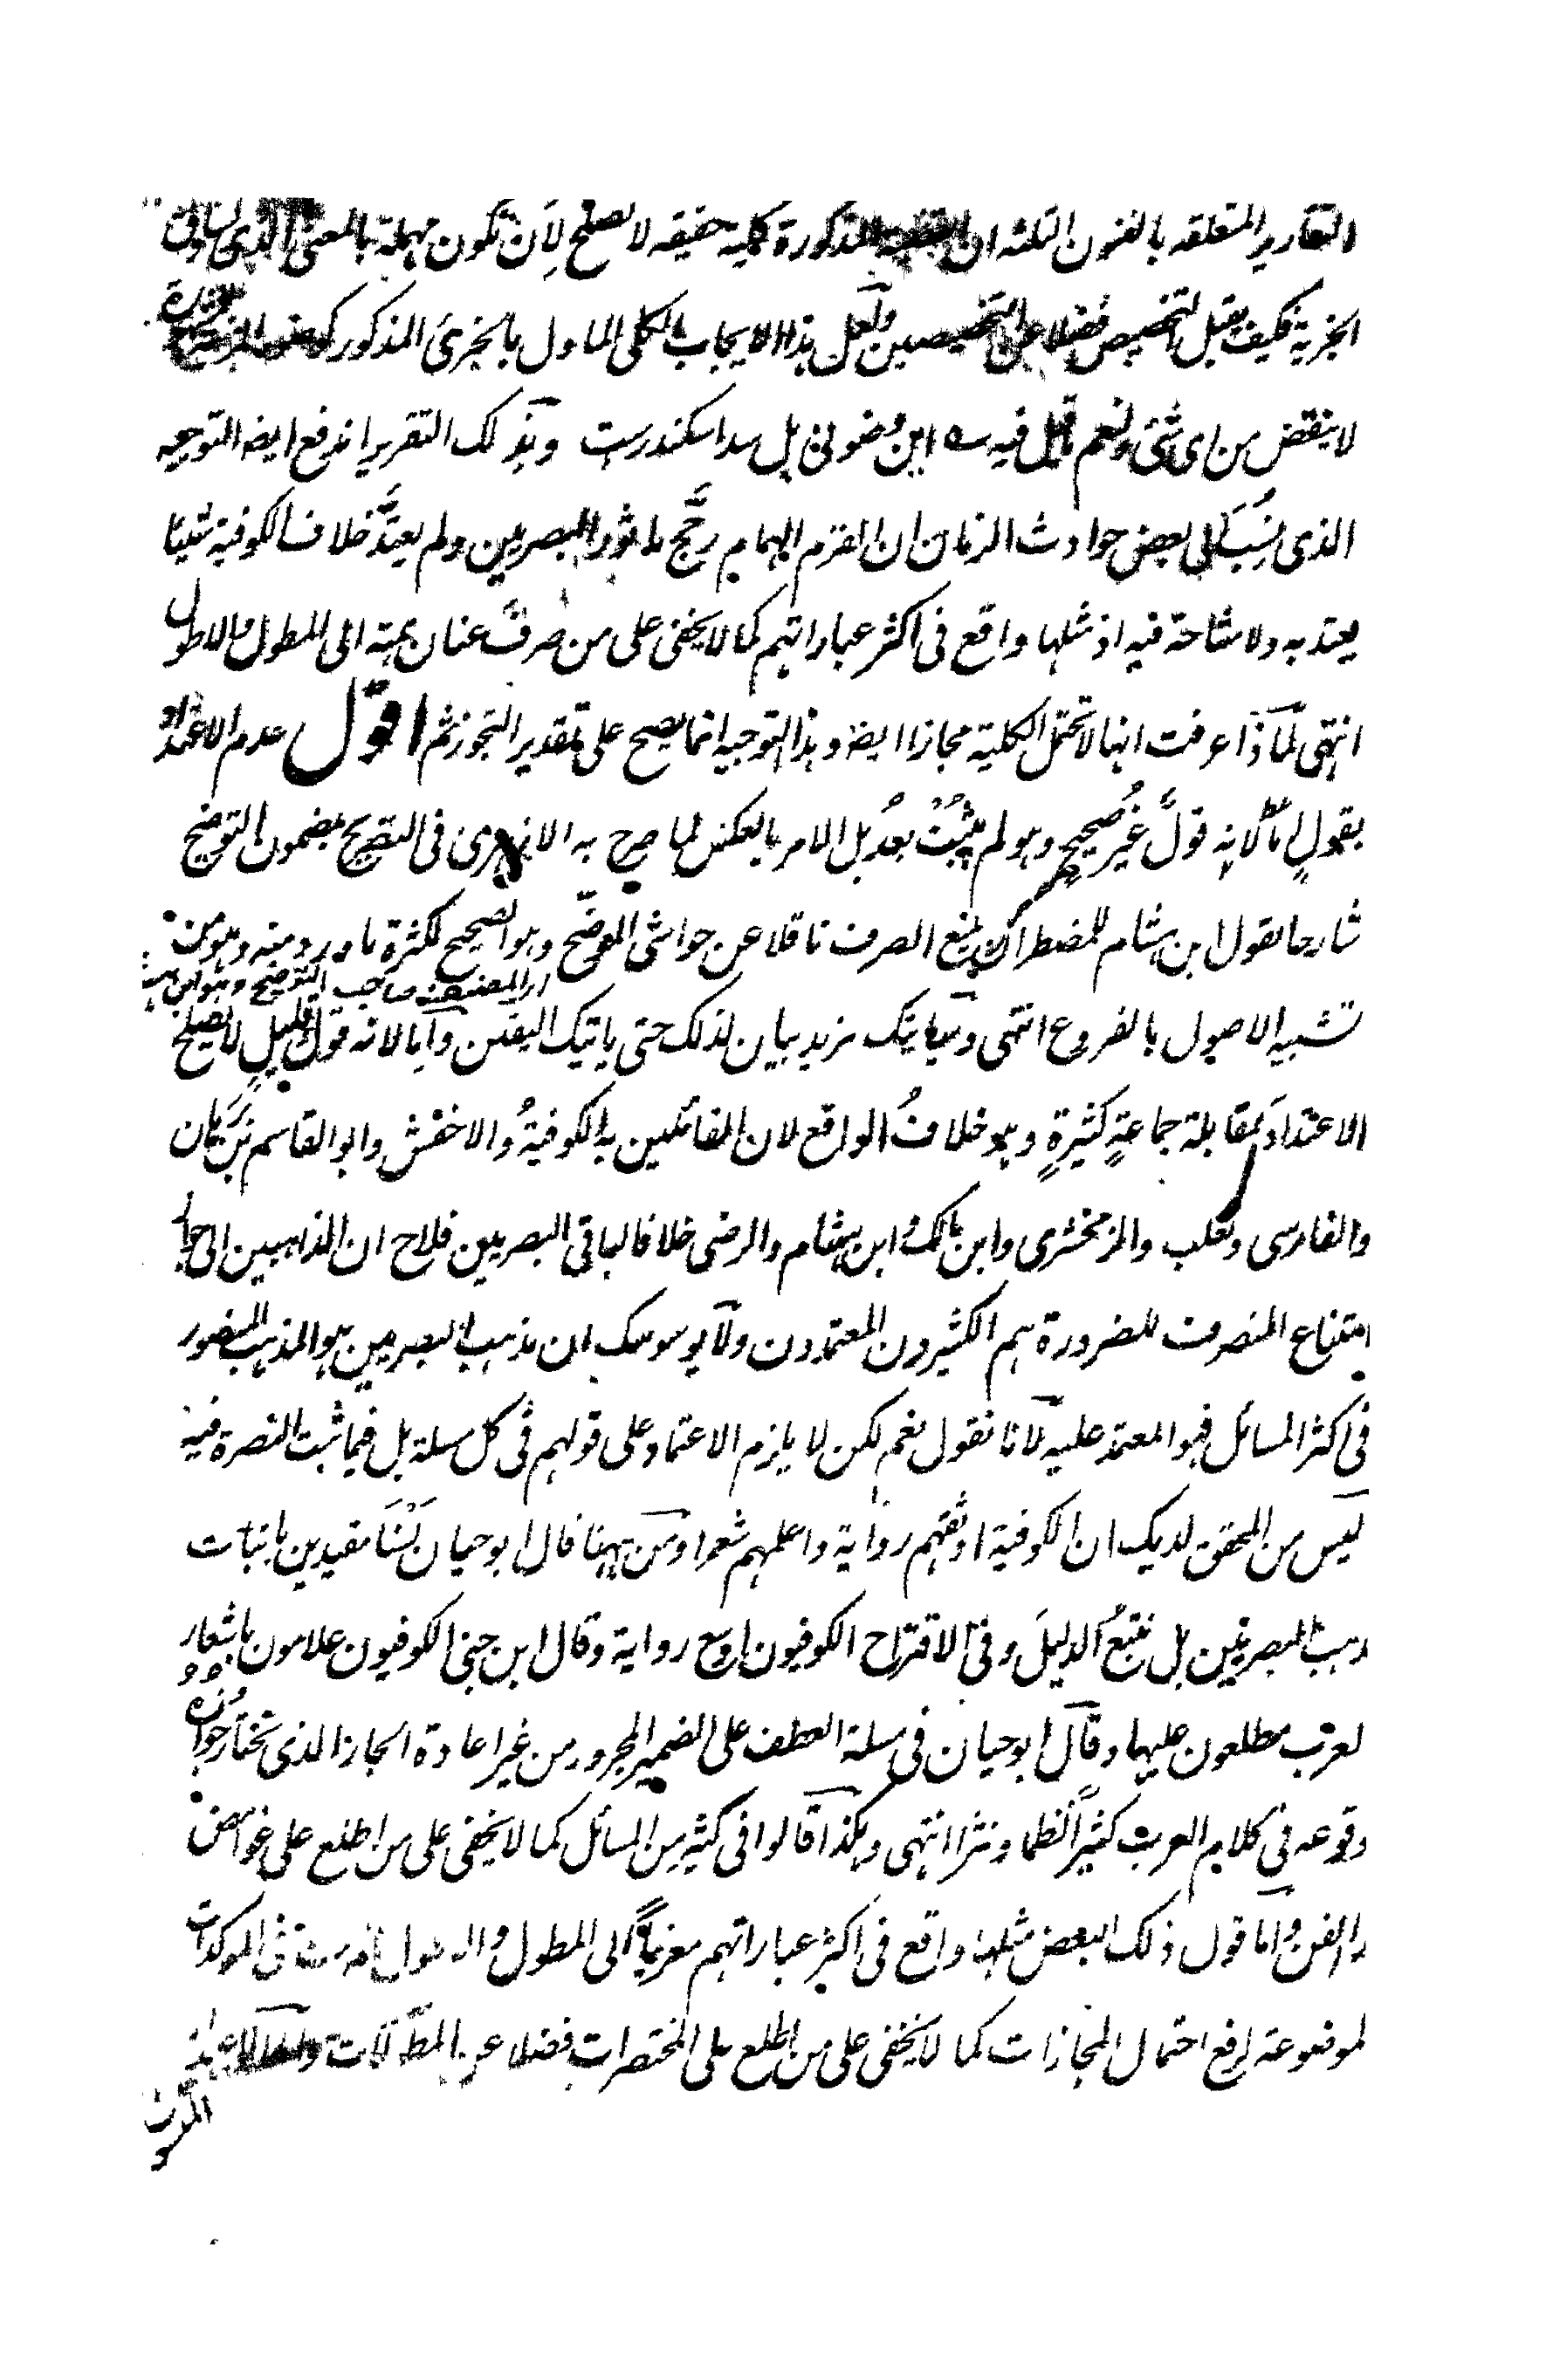 التقارير المتعلقه بالفنون الثلثه ان القضية المذكورة كلية حقيقه لا تصلح لأن تكون مهملة بالمعنى الذي
الجزية فكيف يقبل التخصيص فضلا عن التخصيصين ولعل هذا الايجاب الكلى الماول بالجزئ المذكور
لا ينقض من اى شئ ونعم ما قيل فيه این وضونی پل سد اسکندرست وبذلك التقرير اندفع ايضا التوجيه
الذى نُسِبَ الى بعض حوادث الزمان ان القرم الهمام رجَّح ماثور البصريين ولم يعتدَّ خلاف الكوفية شيئا
يعتد به ولا مشاحة فيه اذ مثلها واقع فى اكثر عباراتهم كما لا يخفى على من صرف عنان همته الى المطول والاطول
انتهى لماذا عرفت انها لا تحتمل الكلية مجازا ايضا وهذا التوجيه انما يصح على تقدير التجوز ثم اقول عدم الاعتداد
بقولٍ امّا لانه قولٌ غيرُ صحيحٍ وهو لم يثبُتْ بعدُ بل الامر بالعكس لما صرح به الازهرى فى التصريح بمضمون التوضيح
شارحا لقول ابن هشام للمضطر ان يمنع الصرف ناقلا عن حواشى الموضّح وهو الصحيح لكثرة ما ورد منه وهو من
اى المصنف صاحب التوضيح وهو ابن هشام
تشبيه الاصول بالفروع انتهى وسياتيك مزيد بيان لذلك حتى ياتيك اليقين وامّا لانه قول قليلٍ لا يصلح
الاعتدادَ لمقابلة جماعةٍ كثيرةٍ وهو خلافُ الواقع لان القائلين به الكوفيةُ والاخفش وابو القاسم بن برهان
والفارسى وثعلب والزمخشرى وابن مالك وابن هشام والرضى خلافا لباقى البصريين فلاح ان الذاهبين الى جواز
امتناع المنصرف للضرورة هم الكثيرون المعتمدون ولا يوسوسك ان مذهب البصريين هو المذهب المنصور
فى اكثر المسائل فهو المعتمد عليه لانا نقول نعم لكن لا يلزم الاعتماد على قولهم فى كل مسلة بل فيما ثبت النصرة فيه
ليس من المحقق لديك ان الكوفية اوثقهم رواية واعلمهم شعرا ومن ههنا قال ابو حيان لَسْنَا مقيدين باثبات
ذهب البصريين بل نتبعُ الدليلَ وفى الاقتراح الكوفيون اوسع رواية وقال ابن جنى الكوفيون علامون باشعار
لعرب مطلعون عليها وقال ابو حيان فى مسلة العطف على الضمير المجرور من غير اعادة الجار الذى نختار جوازه
وقوعه فى كلام العرب كثيراً نظما ونثرا انتهى وهكذا قالوا فى كثير من المسائل كما لا يخفى على من اطلع على غوامض
ذا الفن واما قول ذلك البعض مثلها واقع فى اكثر عباراتهم معزياً الى المطول و فى الموكدات
لموضوعة لرفع احتمال المجازات كما لا يخفى على من اطلع على المختصرات فضلا عن المطولات